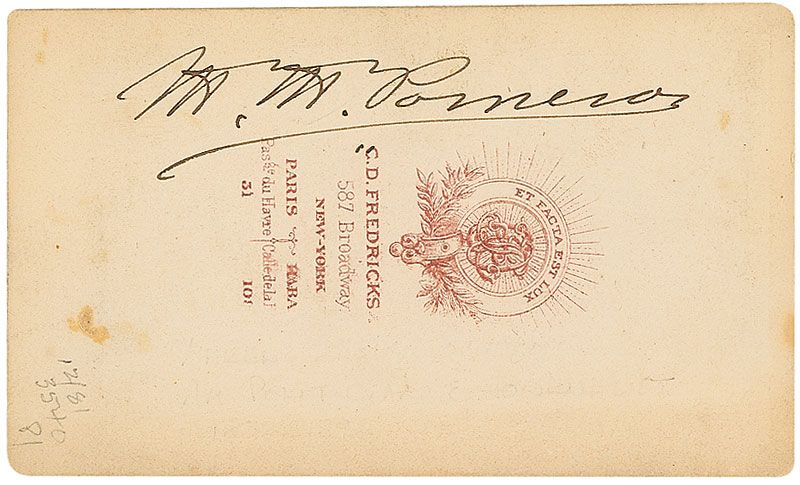 M. M. Pomeroy
ET FACTA EST LUX
C.D. FREDRICKS
587 Broadway
NEW-YORK
PARIS HABA
Passe. du Havre Calle de la
31 108
12/81
3540
81